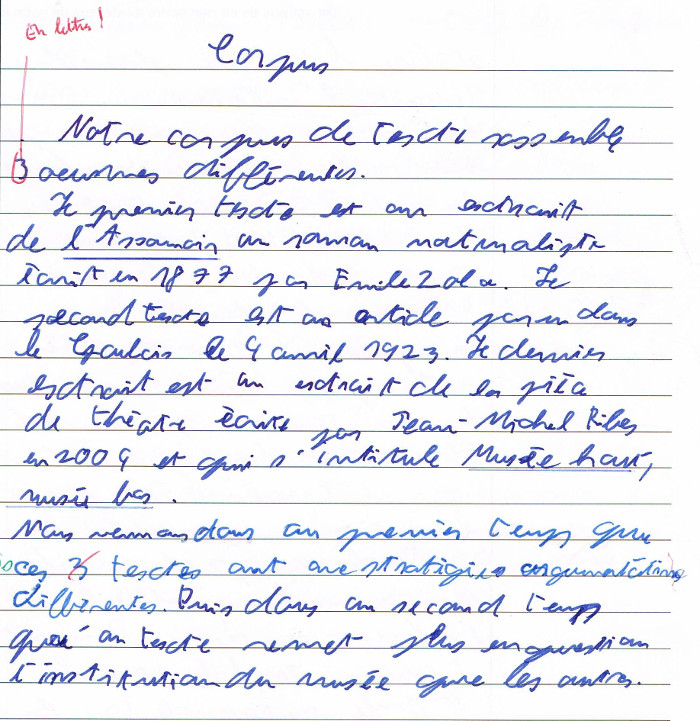 En lettres !
Corpus
Notre corpus de texte rassemble
3 oeuvres différentes.
Le premier texte est un extrait
de l'Assomoir un roman naturaliste
écrit en 1877 par Emile Zola. Le
second texte est un article paru dans
le Gaulois le 4 avril 1923. Le dernier
extrait est un extrait de la pièce
de théâtre écrite par Jean-Michel Ribes
en 2004 et qui s'intitule Musée haut,
musée bas.
Nous verrons dans un premier temps que
ces 3 textes ont une stratégie argumentative
différentes. Puis dans un second temps
qu'un texte remet plus en question
l'institution du musée que les autres.